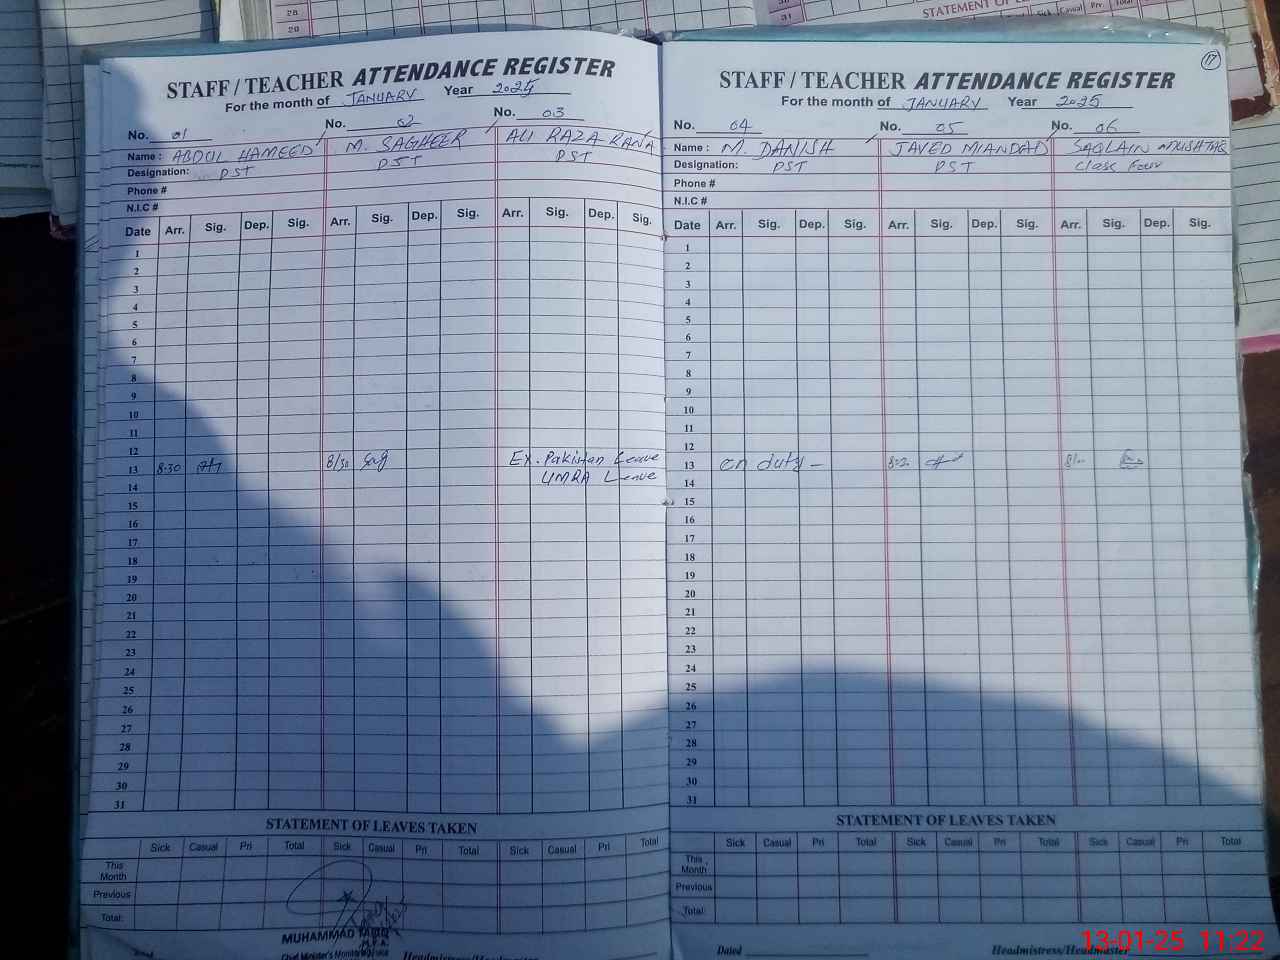 28
29
STATEMENT OF
30
31
Sick Casual Pri Total
17
STAFF / TEACHER ATTENDANCE REGISTER
For the month of JANUARY Year 2025
No. 01 No. 02 No. 03
Name : ABDUL HAMEED M. SAGHEER ALI RAZA RANA
Designation: PST PST PST
Phone #
N.I.C #
Date Arr. Sig. Dep. Sig. Arr. Sig. Dep. Sig. Arr. Sig. Dep. Sig.
1
2
3
4
5
6
7
8
9
10
11
12
13 8:30 8/30 Sag Ex. Pakistan Leave
14 UMRA Leave
15
16
17
18
19
20
21
22
23
24
25
26
27
28
29
30
31
STATEMENT OF LEAVES TAKEN
Sick Casual Pri Total Sick Casual Pri Total Sick Casual Pri Total
This Month
Previous
Total:
MUHAMMAD
M.E.A.
Chief Minister's Monitoring
Headmistress/Headmaster
STAFF / TEACHER ATTENDANCE REGISTER
For the month of JANUARY Year 2025
No. 04 No. 05 No. 06
Name : M. DANISH JAVED MIANDAD SAQLAIN MUSHTAQ
Designation: PST PST Class Four
Phone #
N.I.C #
Date Arr. Sig. Dep. Sig. Arr. Sig. Dep. Sig. Arr. Sig. Dep. Sig.
1
2
3
4
5
6
7
8
9
10
11
12
13 on duty -
14
15
16
17
18
19
20
21
22
23
24
25
26
27
28
29
30
31
STATEMENT OF LEAVES TAKEN
Sick Casual Pri Total Sick Casual Pri Total Sick Casual Pri Total
This Month
Previous
Total:
Dated Headmistress/Headmaster
13-01-25 11:22